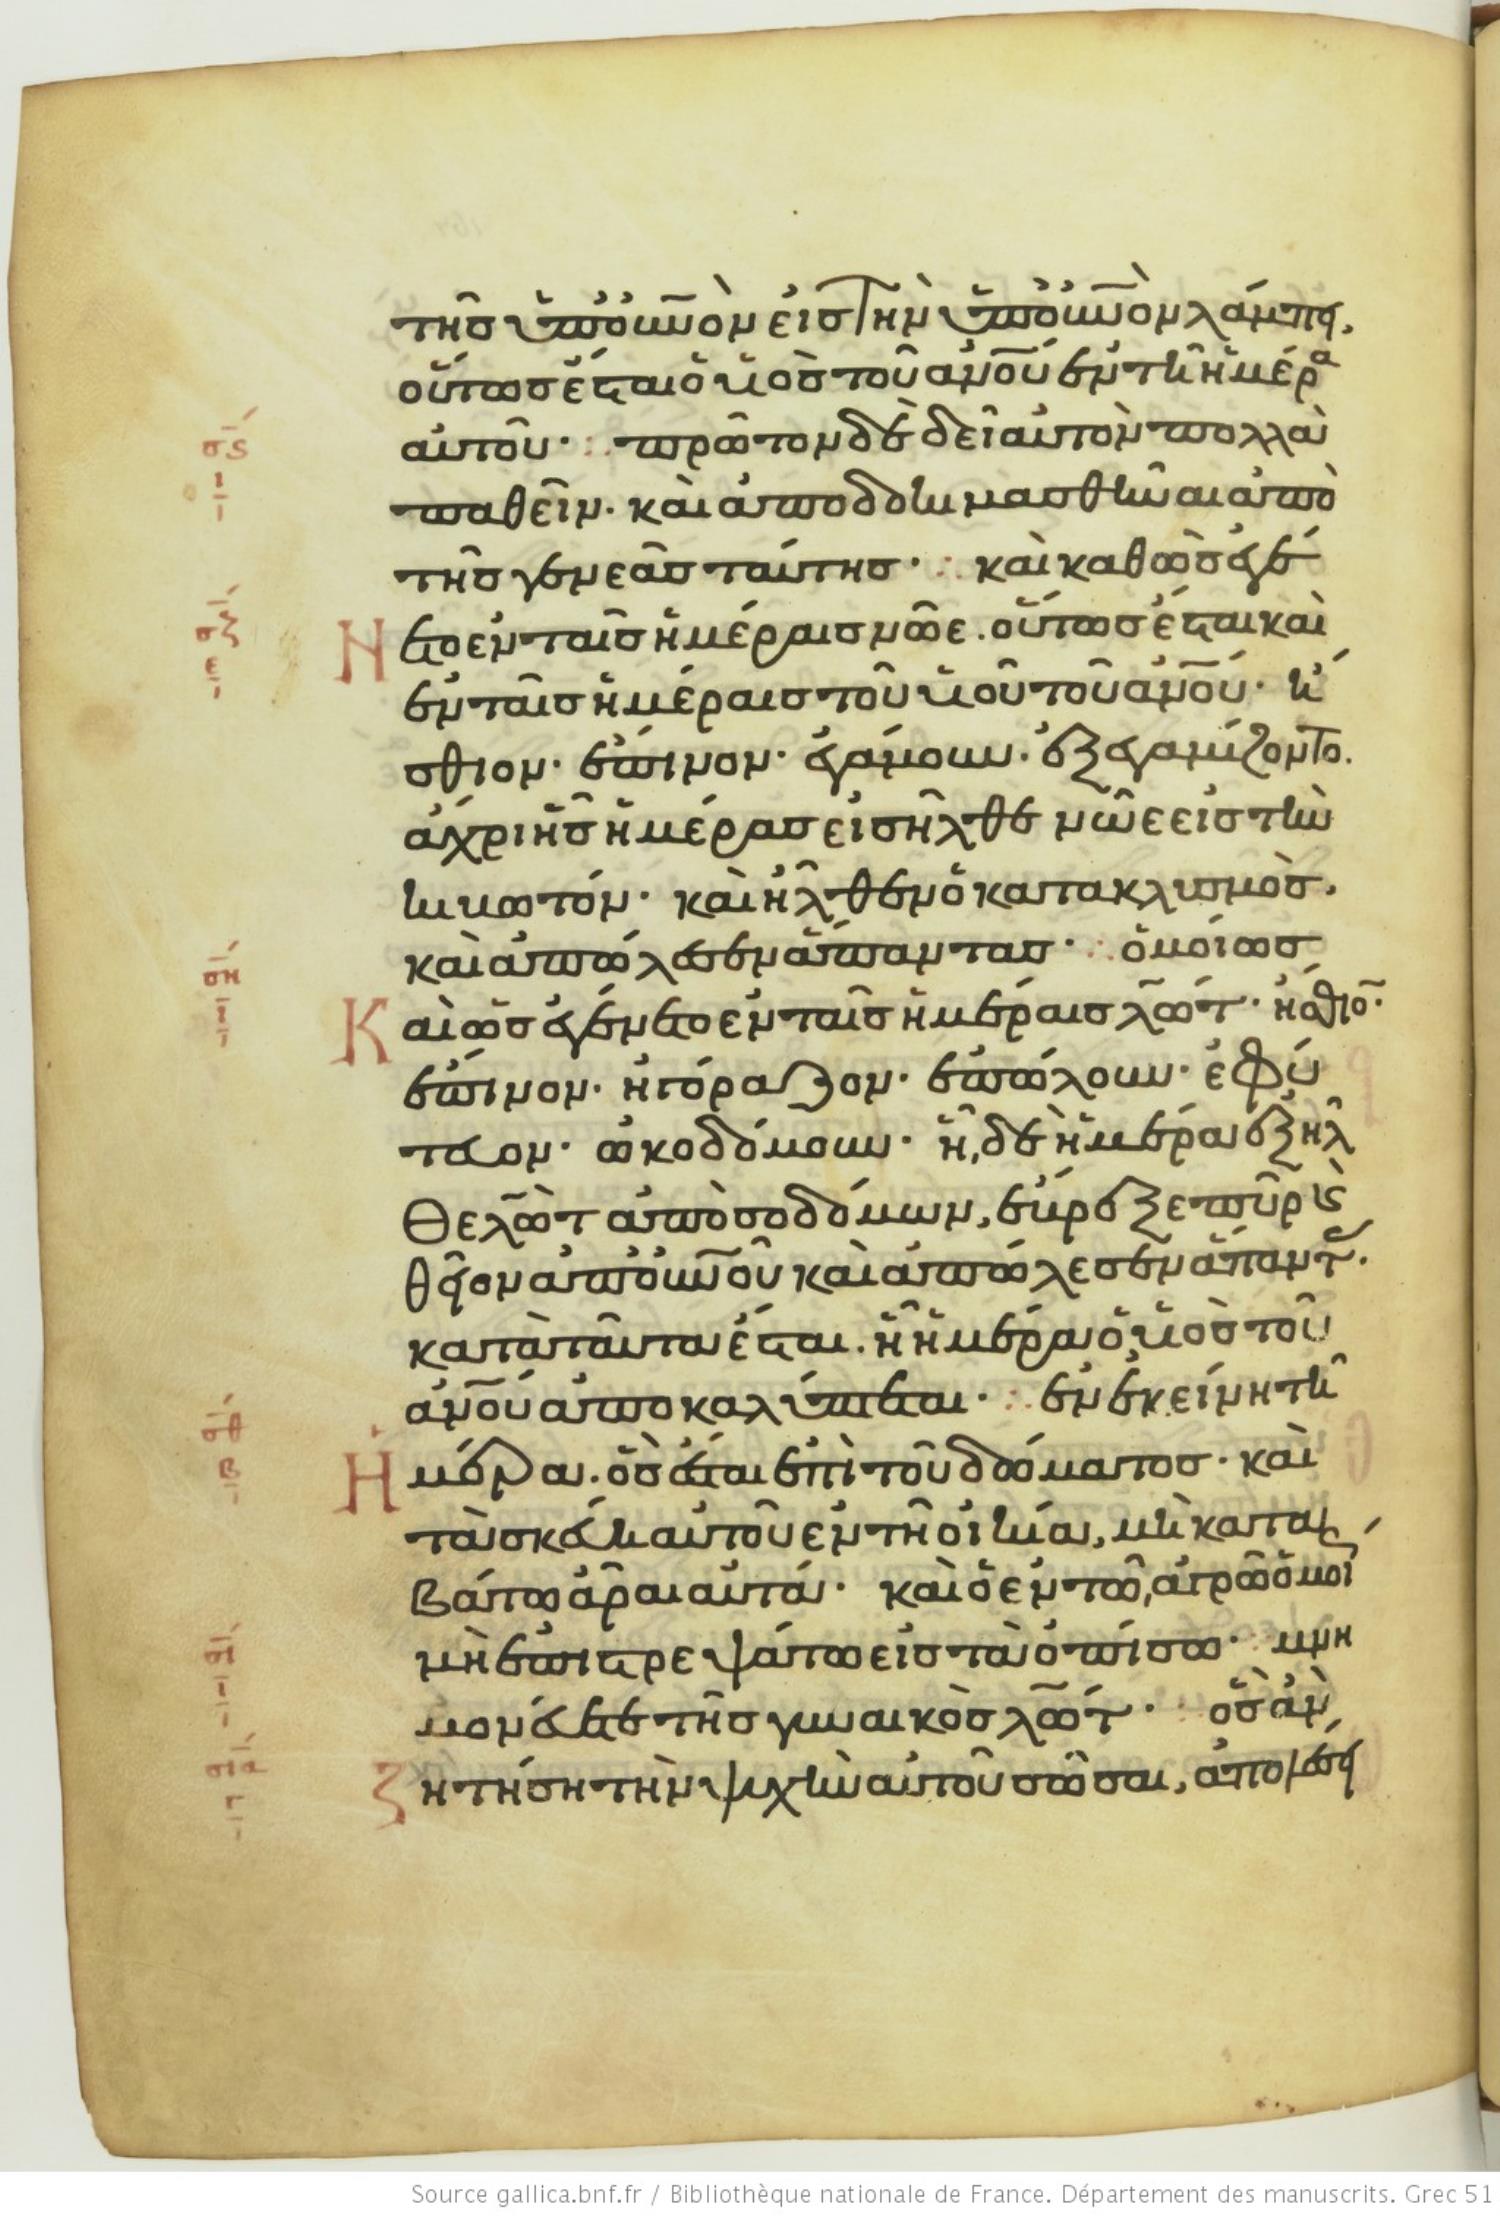 τῆς ὑπ' οὐνὸν εἰς τὴν ὑπ' οὐνὸν λάμπει,
οὕτως ἔσται ὁ υἱὸς τοῦ ἀνου ἐν τῆ ἡμέρα
αὐτοῦ· πρῶτον δὲ δεῖ αὐτὸν πολλὰ
παθεῖν. καὶ ἀποδοκιμασθῆναι ἀπὸ
τῆς γενεᾶς ταύτης· καὶ καθὼς ἐγέ
Νετο ἐν ταῖς ἡμέραις νῶε. οὕτως ἔσται καὶ
ἐν ταῖς ἡμέραις τοῦ υἱοῦ τοῦ ἀνου· ἤ
σθιον· ἔπινον· ἐγάμουν· ἐξεγαμίζοντο.
ἄχρι ἧς ἡμέρας εἰσῆλθε νῶε εἰς τὴν
κιβωτόν· καὶ ἦλθεν ὁ κατακλυσμὸς,
καὶ ἀπώλεσεν ἅπαντας· ὁμοίως
Καὶ ὡς ἐγένετο ἐν ταῖς ἡμέραις λώτ· ἤσθιον·
ἔπινον· ἠγόραζον· ἐπώλουν· ἐφύ
τευον· ὠκοδόμουν· ἧ δὲ ἡμέρα ἐξῆλ
θε λὼτ ἀπὸ σοδόμων, ἔβρεξε πῦρ καὶ
θεῖον ἀπ' οὐνοῦ καὶ ἀπώλεσεν ἅπαντας.
κατὰ ταῦτα ἔσται. ἧ ἡμέρα ὁ υἱὸς τοῦ
ἀνου ἀποκαλύπτεται· ἐν ἐκείνη τῆ
Ἡμέρα. ὃς ἔσται ἐπὶ τοῦ δώματος· καὶ
τὰ σκεύη αὐτοῦ ἐν τῆ οἰκία, μὴ κατα
βάτω ἆραι αὐτά· καὶ ὁ ἐν τῶ ἀγρῶ ὁμοί
μὴ ἐπιστρεψάτω εἰς τὰ ὀπίσω· μνη
μονεύετε τῆς γυναικὸς λώτ· ὃς ἐὰν
Ζητήση τὴν ψυχὴν αὐτοῦ σῶσαι, ἀπολέσει
Source gallica.bnf.fr / Bibliothèque nationale de France. Département des manuscrits. Grec 51